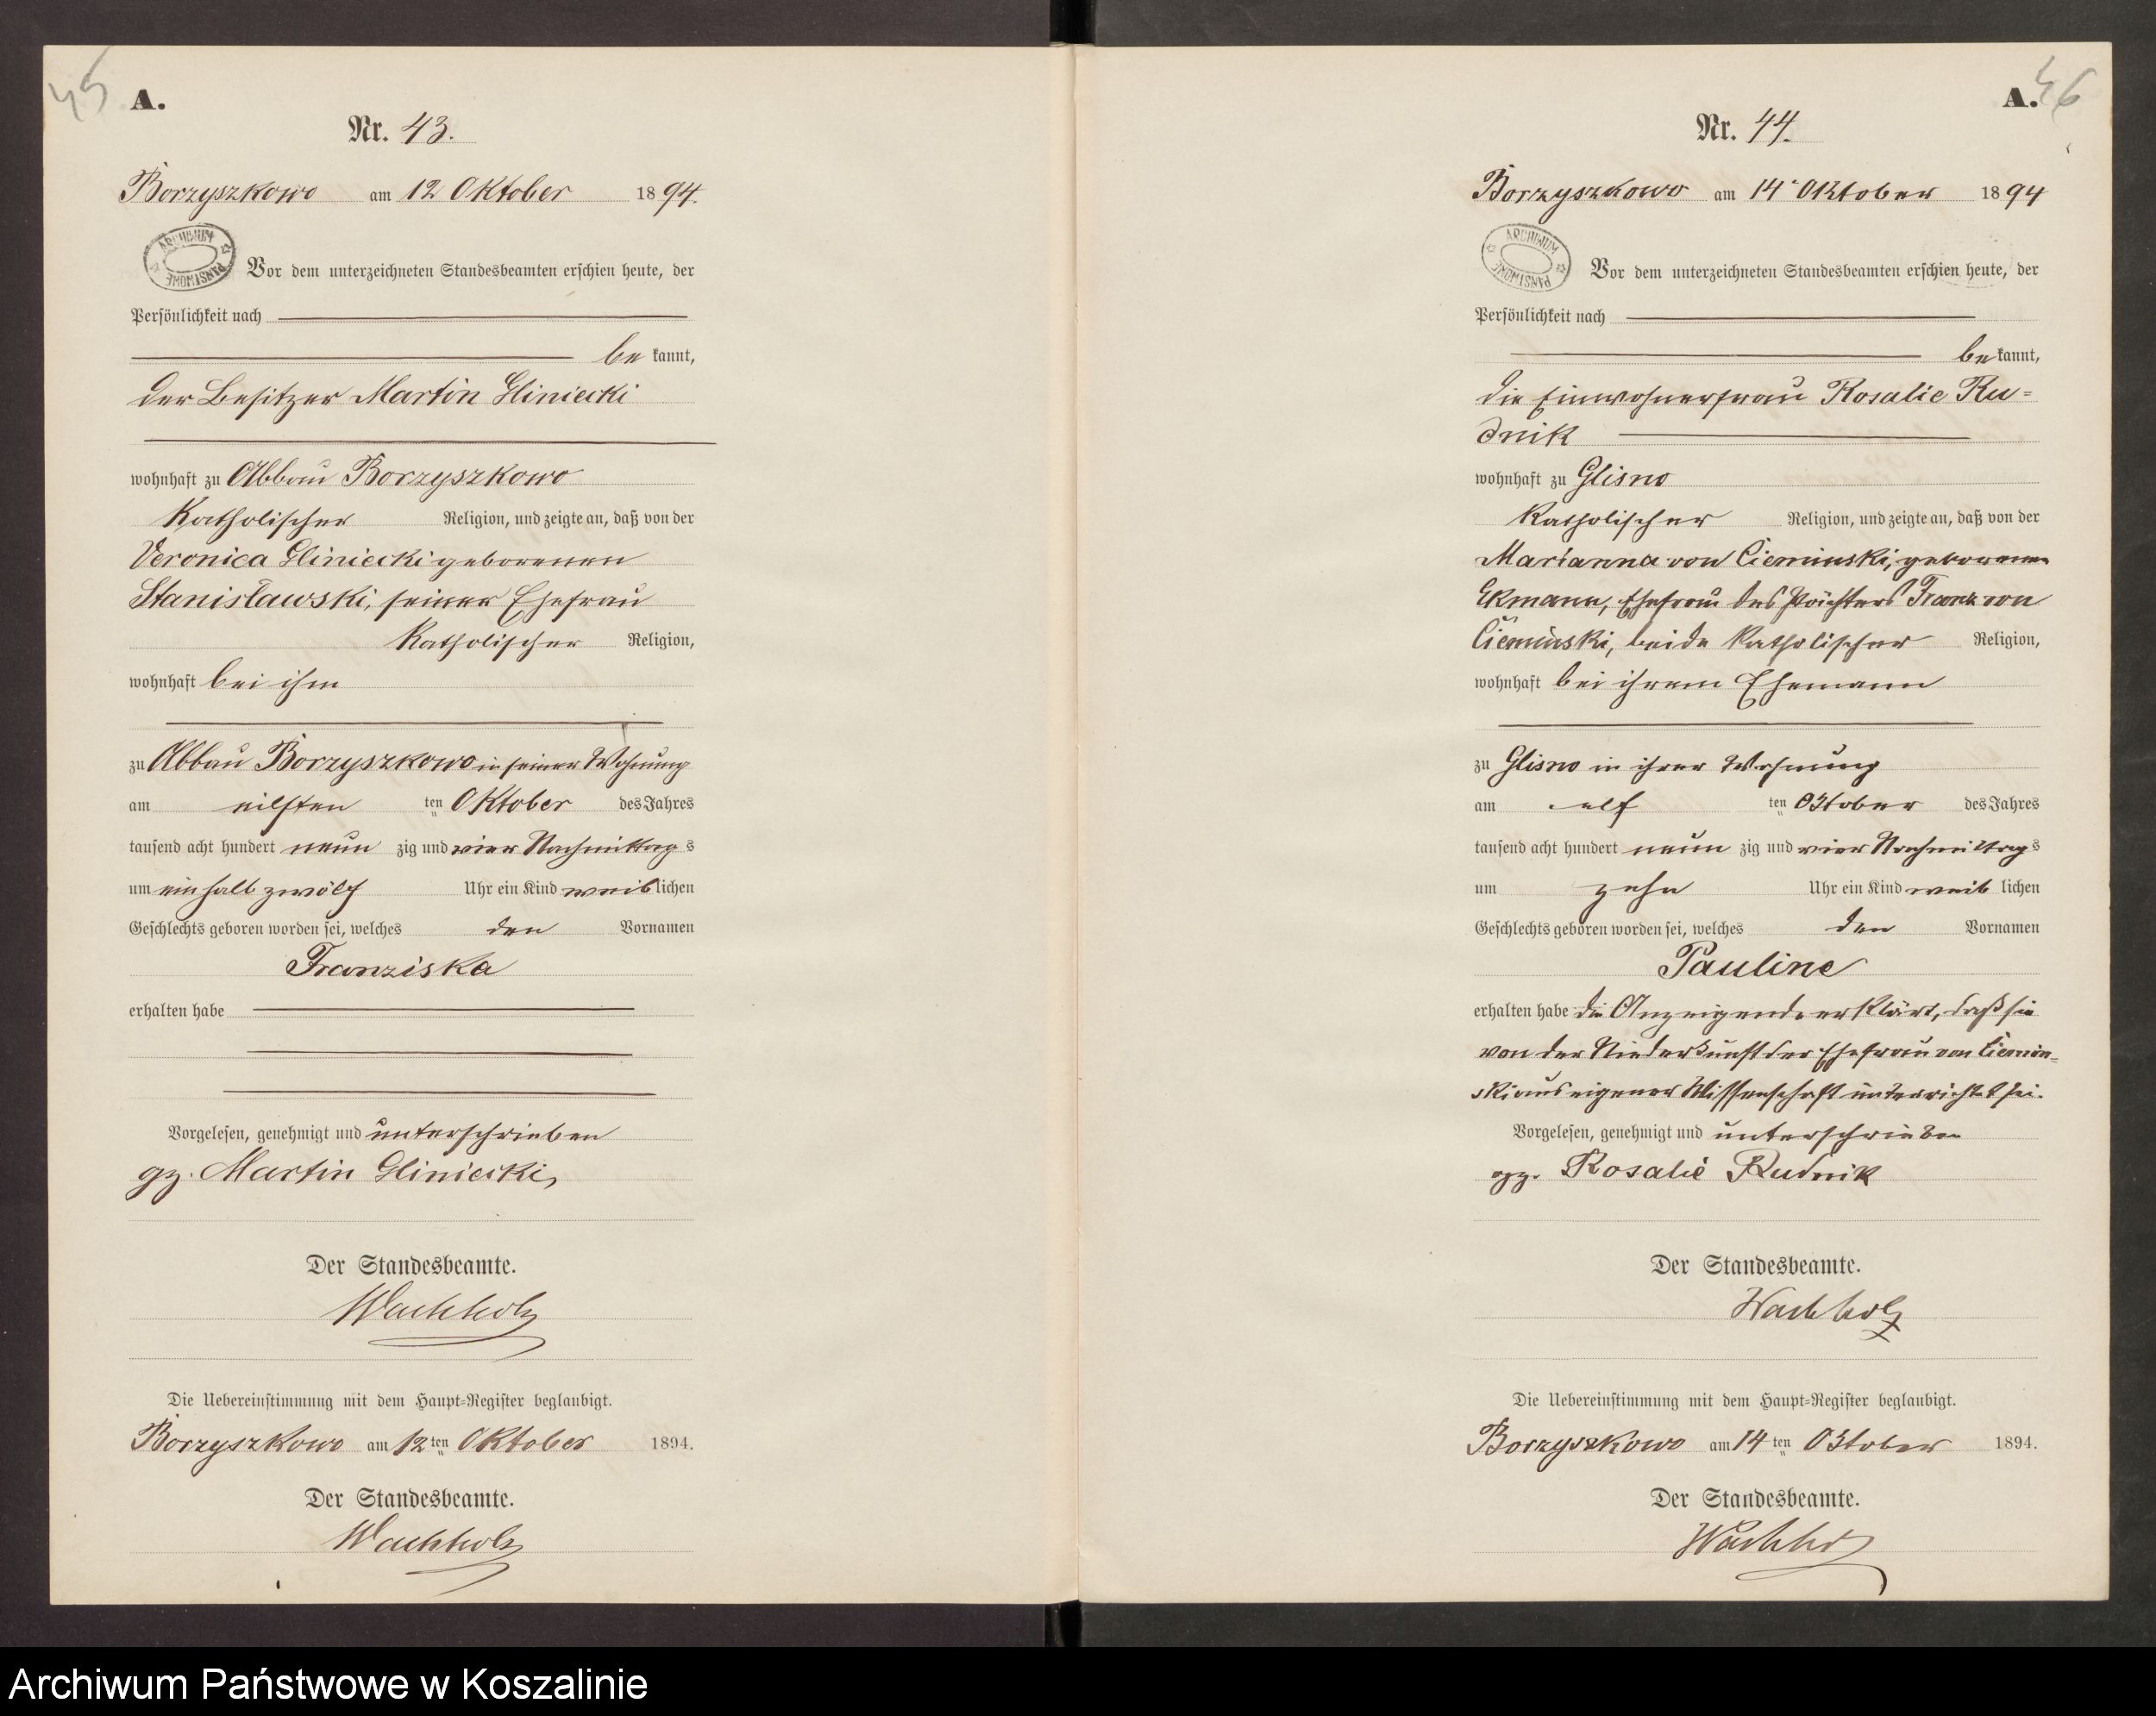 45
A.
Nr. 43.
Borzyszkowo am 12 Oktober 1894.
ARCHIWUM PAŃSTWOWE
Vor dem unterzeichneten Standesbeamten erschien heute, der
Persönlichkeit nach
be kannt,
der Besitzer Martin Gliniecki
wohnhaft zu Abbau Borzyszkowo
Katholischer Religion, und zeigte an, daß von der
Veronica Gliniecki geborenen
Stanisławski, seiner Ehefrau
Katholischer Religion,
wohnhaft bei ihm
zu Abbau Borzyszkowo in seiner Wohnung
am eilften ten Oktober des Jahres
tausend acht hundert neun zig und vier Nachmittag s
um ein halb zwölf Uhr ein Kind weib lichen
Geschlechts geboren worden sei, welches den Vornamen
Franziska
erhalten habe
Vorgelesen, genehmigt und unterschrieben
gz. Martin Gliniecki,
Der Standesbeamte.
Wachholz
Die Uebereinstimmung mit dem Haupt-Register beglaubigt.
Borzyszkowo am 12 ten Oktober 1894.
Der Standesbeamte.
Wachholz
46
A.
Nr. 44.
Borzyszkowo am 14 Oktober 1894
ARCHIWUM PAŃSTWOWE
Vor dem unterzeichneten Standesbeamten erschien heute, der
Persönlichkeit nach
be kannt,
die Einwohnerfrau Rosalie Ru=
dnik
wohnhaft zu Glisno
Katholischer Religion, und zeigte an, daß von der
Marianna von Cieminski, geborenen
Ekmann, Ehefrau des Pächters Franz von
Cieminski, beide Katholischer Religion,
wohnhaft bei ihrem Ehemann
zu Glisno in ihrer Wohnung
am elf ten Oktober des Jahres
tausend acht hundert neun zig und vier Nachmittag s
um zehn Uhr ein Kind weib lichen
Geschlechts geboren worden sei, welches den Vornamen
Pauline
erhalten habe die Anzeigende erklärt, daß sie
von der Niederkunft der Ehefrau von Ciemin=
ski aus eigener Wissenschaft unterrichtet sei.
Vorgelesen, genehmigt und unterschrieben
gz. Rosalie Rudnik
Der Standesbeamte.
Wachholz
Die Uebereinstimmung mit dem Haupt-Register beglaubigt.
Borzyszkowo am 14 ten Oktober 1894.
Der Standesbeamte.
Wachholz
Archiwum Państwowe w Koszalinie